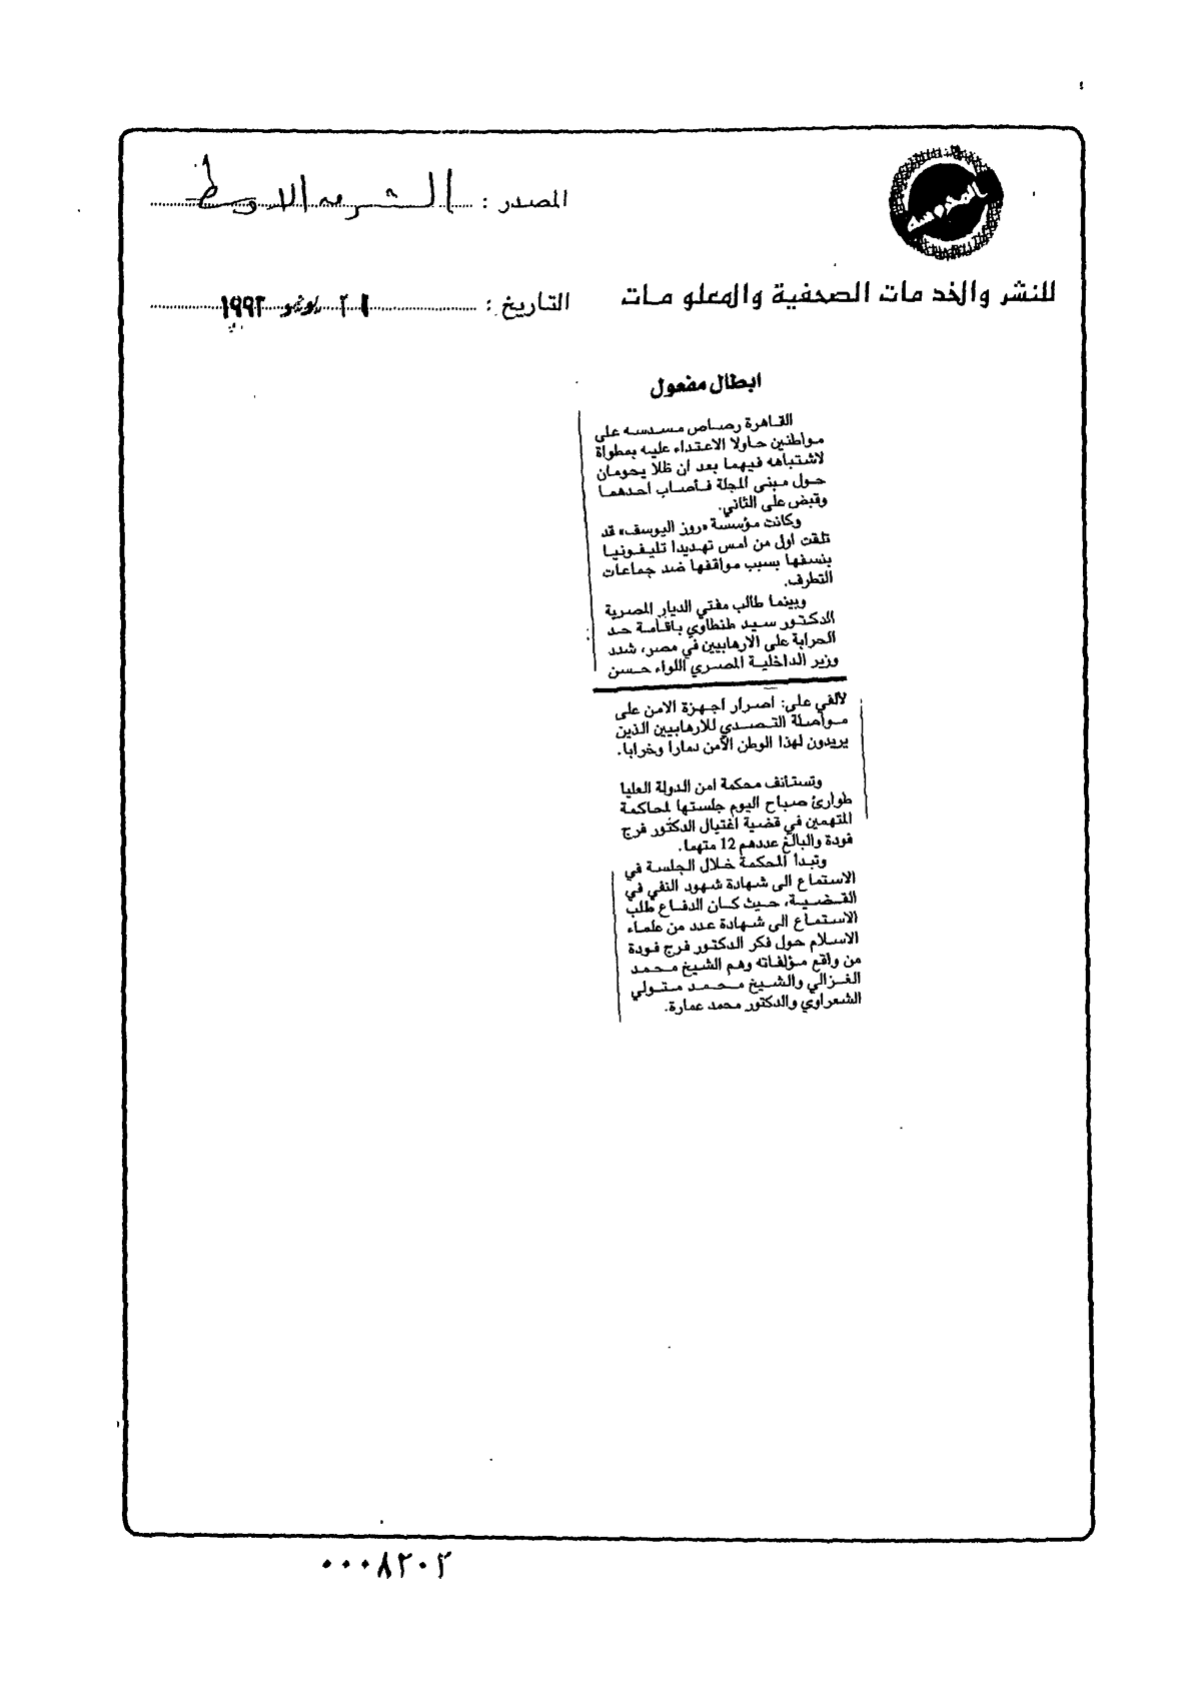 المحروسة
المصدر : الشرق الاوسط
للنشر والخدمات الصحفية والمعلومات
التاريخ : ٢١ يونيو ١٩٩٣
ابطال مفعول
القاهرة رصاص مسدسه على
مواطنين حاولا الاعتداء عليه بمطواة
لاشتباهه فيهما بعد ان ظلا يحومان
حول مبنى المجلة فأصاب احدهما
وقبض على الثاني.
وكانت مؤسسة «روز اليوسف» قد
تلقت اول من امس تهديدا تليفونيا
بنسفها بسبب مواقفها ضد جماعات
التطرف.
وبينما طالب مفتي الديار المصرية
الدكتور سيد طنطاوي باقامة حد
الحرابة على الارهابيين في مصر، شدد
وزير الداخلية المصري اللواء حسن
لألفي على: اصرار اجهزة الامن على
مواصلة التصدي للارهابيين الذين
يريدون لهذا الوطن الآمن دمارا وخرابا.
وتستأنف محكمة امن الدولة العليا
طوارئ صباح اليوم جلستها لمحاكمة
المتهمين في قضية اغتيال الدكتور فرج
فودة والبالغ عددهم 12 متهما.
وتبدأ المحكمة خلال الجلسة في
الاستماع الى شهادة شهود النفي في
القضية، حيث كان الدفاع طلب
الاستماع الى شهادة عدد من علماء
الاسلام حول فكر الدكتور فرج فودة
من واقع مؤلفاته وهم الشيخ محمد
الغزالي والشيخ محمد متولي
الشعراوي والدكتور محمد عمارة.
٠٠٠٨٢٠٢